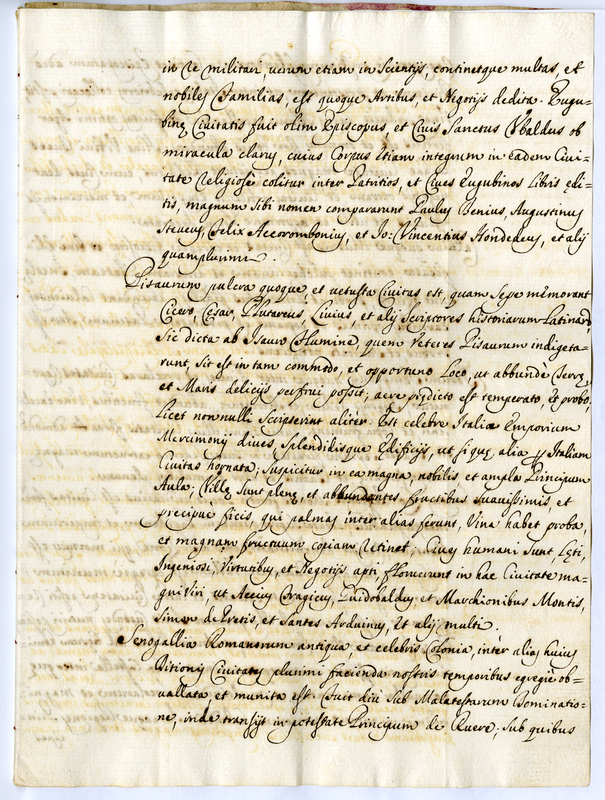 in re militari, uerum etiam in Scientijs, continetque multas, et
nobiles Familias, est quoque Artibus, et Negotijs dedita. Eugu-
binę Ciuitatis fuit olim Episcopus, et Ciuis Sanctus Vbaldus ob
miracula clarus, cuius Corpus etiam integrum in eadem Ciui-
tate religiose colitur inter Patritios, et Ciues Eugubinos Libris edi-
tis, magnum sibi nomen compararunt Paulus Benius, Augustinus
Steucus, Felix Accorombonius, et Jo: Vincentius Hondedeus, et alij
quamplurimi.
Pisaurum pulcra quoque, et uetusta Ciuitas est, quam sepe memorant
Cicero, Cesar, Plutarcus, Liuius, et alij Scriptores historiarum Latinarũ
Sic dicta ab Isauro Flumine, quem Veteres Pisaurum indigeta-
runt, sit est in tam commodo, et opportuno Loco, ut abbundè Terrę,
et Maris delicijs perfrui possit; aere prędicto est temperato, et probo
Licet non nulli scripserint alitèr. Est celebre Italiæ Emporium
Mercimonij diues, splendidisque Edificijs, ut siquę alia p Italiam
Ciuitas hornata; suspicitur in ea magna, nobilis et ampla Principum
Aula; Villę sunt plenę, et abbundantes fructibus suauissimis, et
precipue ficis, qui palmas inter alias ferunt, Vina habet proba,
et magnam fructuum copiam retinet; Ciues humani sunt, lęti,
Ingeniosi, Virtutibus, et Negotijs apti, floruerunt in hac Ciuitate ma-
gni Viri, ut Accius Tragicus, Guidobaldus è Marchionibus Montis,
Simon de Pretis, et Santes Arduinus, et alij multi.
Senogallia Romanorum antiqua, et celebris Colonia, inter alias huius
Ditionis Ciuitates plurimi facienda nostris temporibus egregiè ob-
uallata, et munita est. Fuit diù sub Malatestarum Dominatio-
ne, inde transijt in potestate Principum de Ruere; sub quibus